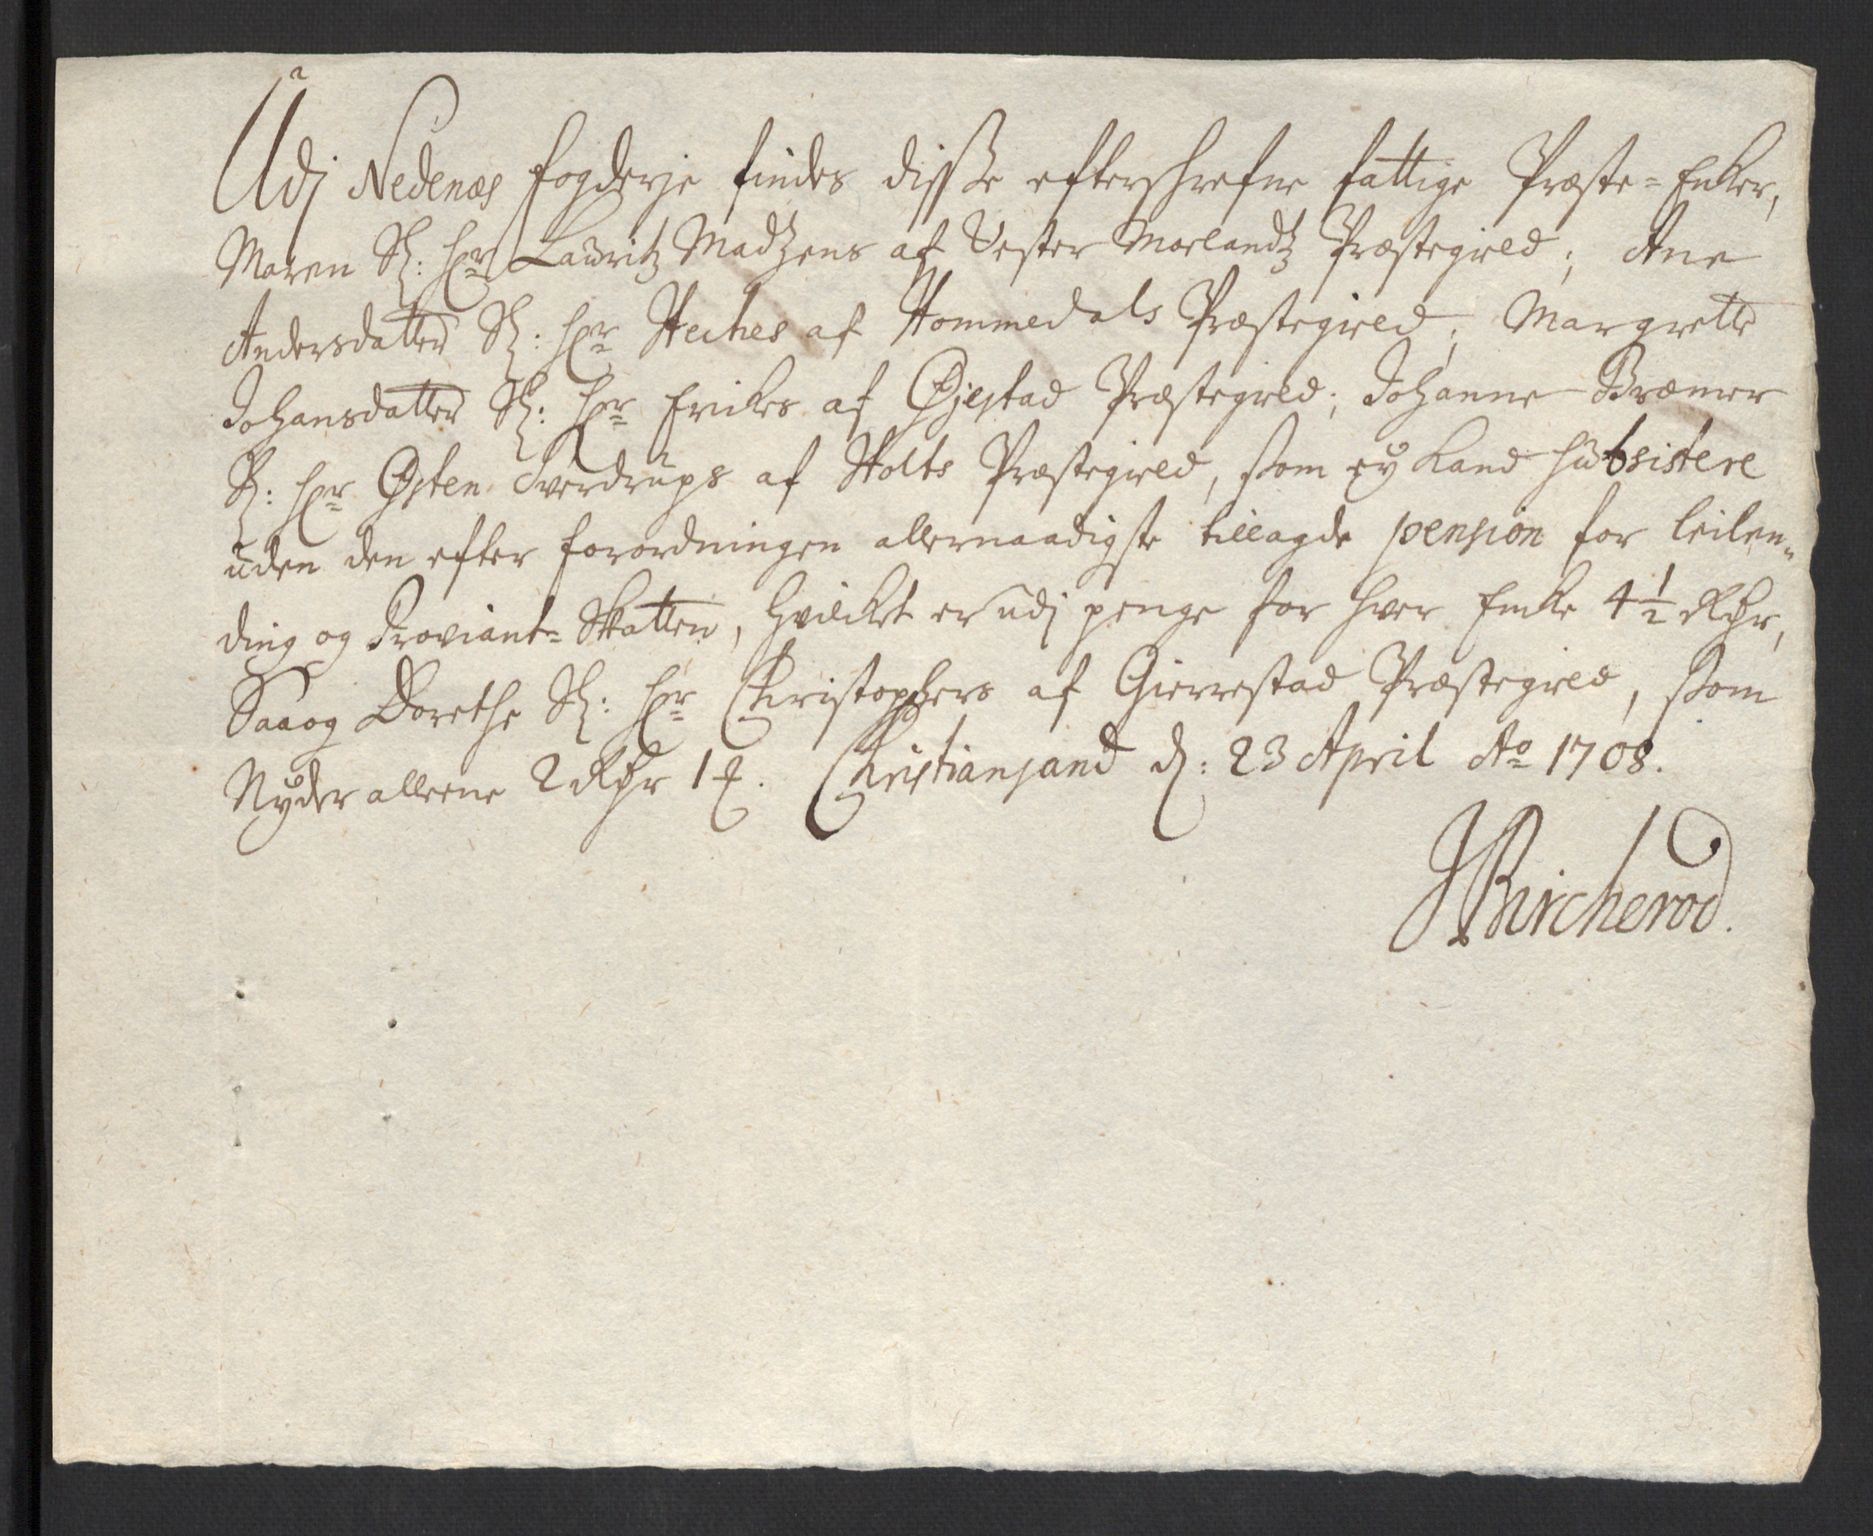 Udj Nedenæs fogderje findes disse efterskrefne fattige Præste-Enker,
Maren Sl: Hr Lauritz Madzens af Vester Morlandz Præstegield; Ane
Andersdatter Sl: Hr af Hommedals Præstegield; Margrette
Johansdatter Sl: Hr Eriks af Øjestad Præstegield; Johanne Bræmer
Sl: Hr Østen Sverdrups af Holts Præstegield, som ey kand subsistere
uden den efter forordningen allernaadigste tillagde pension for leilen-
ding og Proviant-Skatten, hvilket er udj penge for hver Enke 4½ Rdr,
Saa og Dorethe Sl: Hr Christophers af Gierrestad Præstegield, som
Nyder alleene 2 Rdr 1 . Christiansand d: 23 April Ao 1708.
JBircherod.